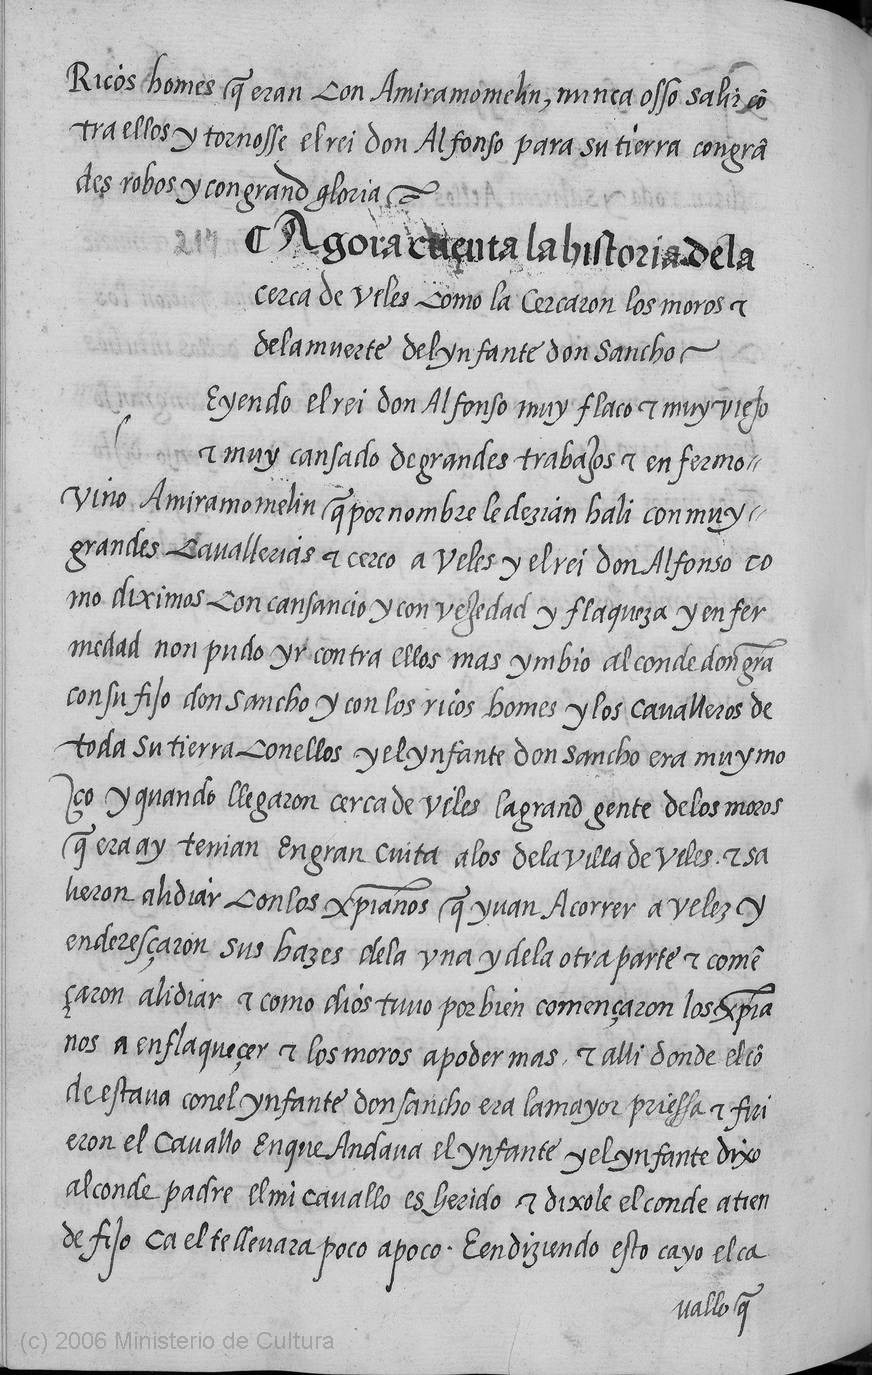 Ricos homes q̃ eran con Amiramomelin, nunca osso salir cõ
tra ellos y tornosse el rei don Alfonso para su tierra con grã
des robos y con grand gloria
¶ Agora cuenta la historia de la
cerca de Veles como la cercaron los moros ⁊
de la muerte del ynfante don Sancho
Eyendo el rei don Alfonso muy flaco ⁊ muy viejo
⁊ muy cansado de grandes trabajos ⁊ enfermo
vino Amiramomelin q̃ por nombre le dezian hali con muy
grandes cavallerias ⁊ cerco a Veles y el rei don Alfonso co
mo diximos con cansancio y con vejedad y flaqueza y enfer
medad non pudo yr contra ellos mas ymbio al conde don gr̃a
con su fijo don Sancho y con los ricos homes y los cavalleros de
toda su tierra con ellos y el ynfante don sancho era muy mo
ço y quando llegaron cerca de Veles la grand gente de los moros
q̃ era ay tenian en gran cuita a los de la villa de Veles. ⁊ sa
lieron a lidiar con los xp̃ianos q̃ yuan Acorrer a velez y
enderesçaron sus hazes de la vna y de la otra parte ⁊ comẽ
çaron a lidiar ⁊ como dios tuuo por bien començaron los xp̃ia
nos a enflaqueçer ⁊ los moros a poder mas, ⁊ alli donde el cõ
de estaua con el ynfante don sancho era la mayor priessa ⁊ firi
eron el Cavallo en que Andaua el ynfante y el ynfante dixo
al conde padre el mi cavallo es herido ⁊ dixole el conde atien
de fijo ca el te lleuara poco a poco. E en diziendo esto cayo el ca
uallo q̃
(c) 2006 Ministerio de Cultura